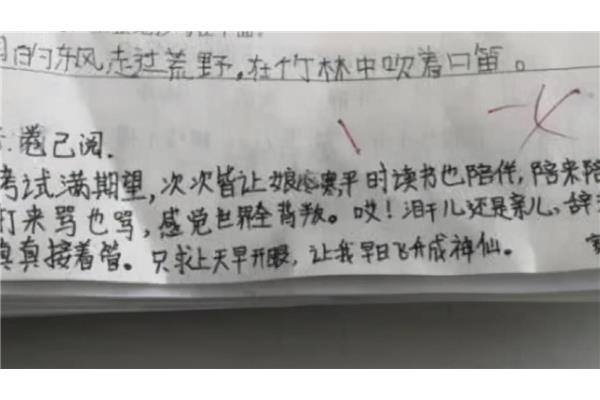 的东风走过荒野,在竹林中吹着口笛。
卷已阅.
考试满期望,次次皆让娘心寒,平时读书也陪伴,陪来陪
打来骂也骂,感觉世界全背叛。哎!泪干儿还是亲儿,辞
真接着管。只求上天早开眼,让我早日飞升成神仙。